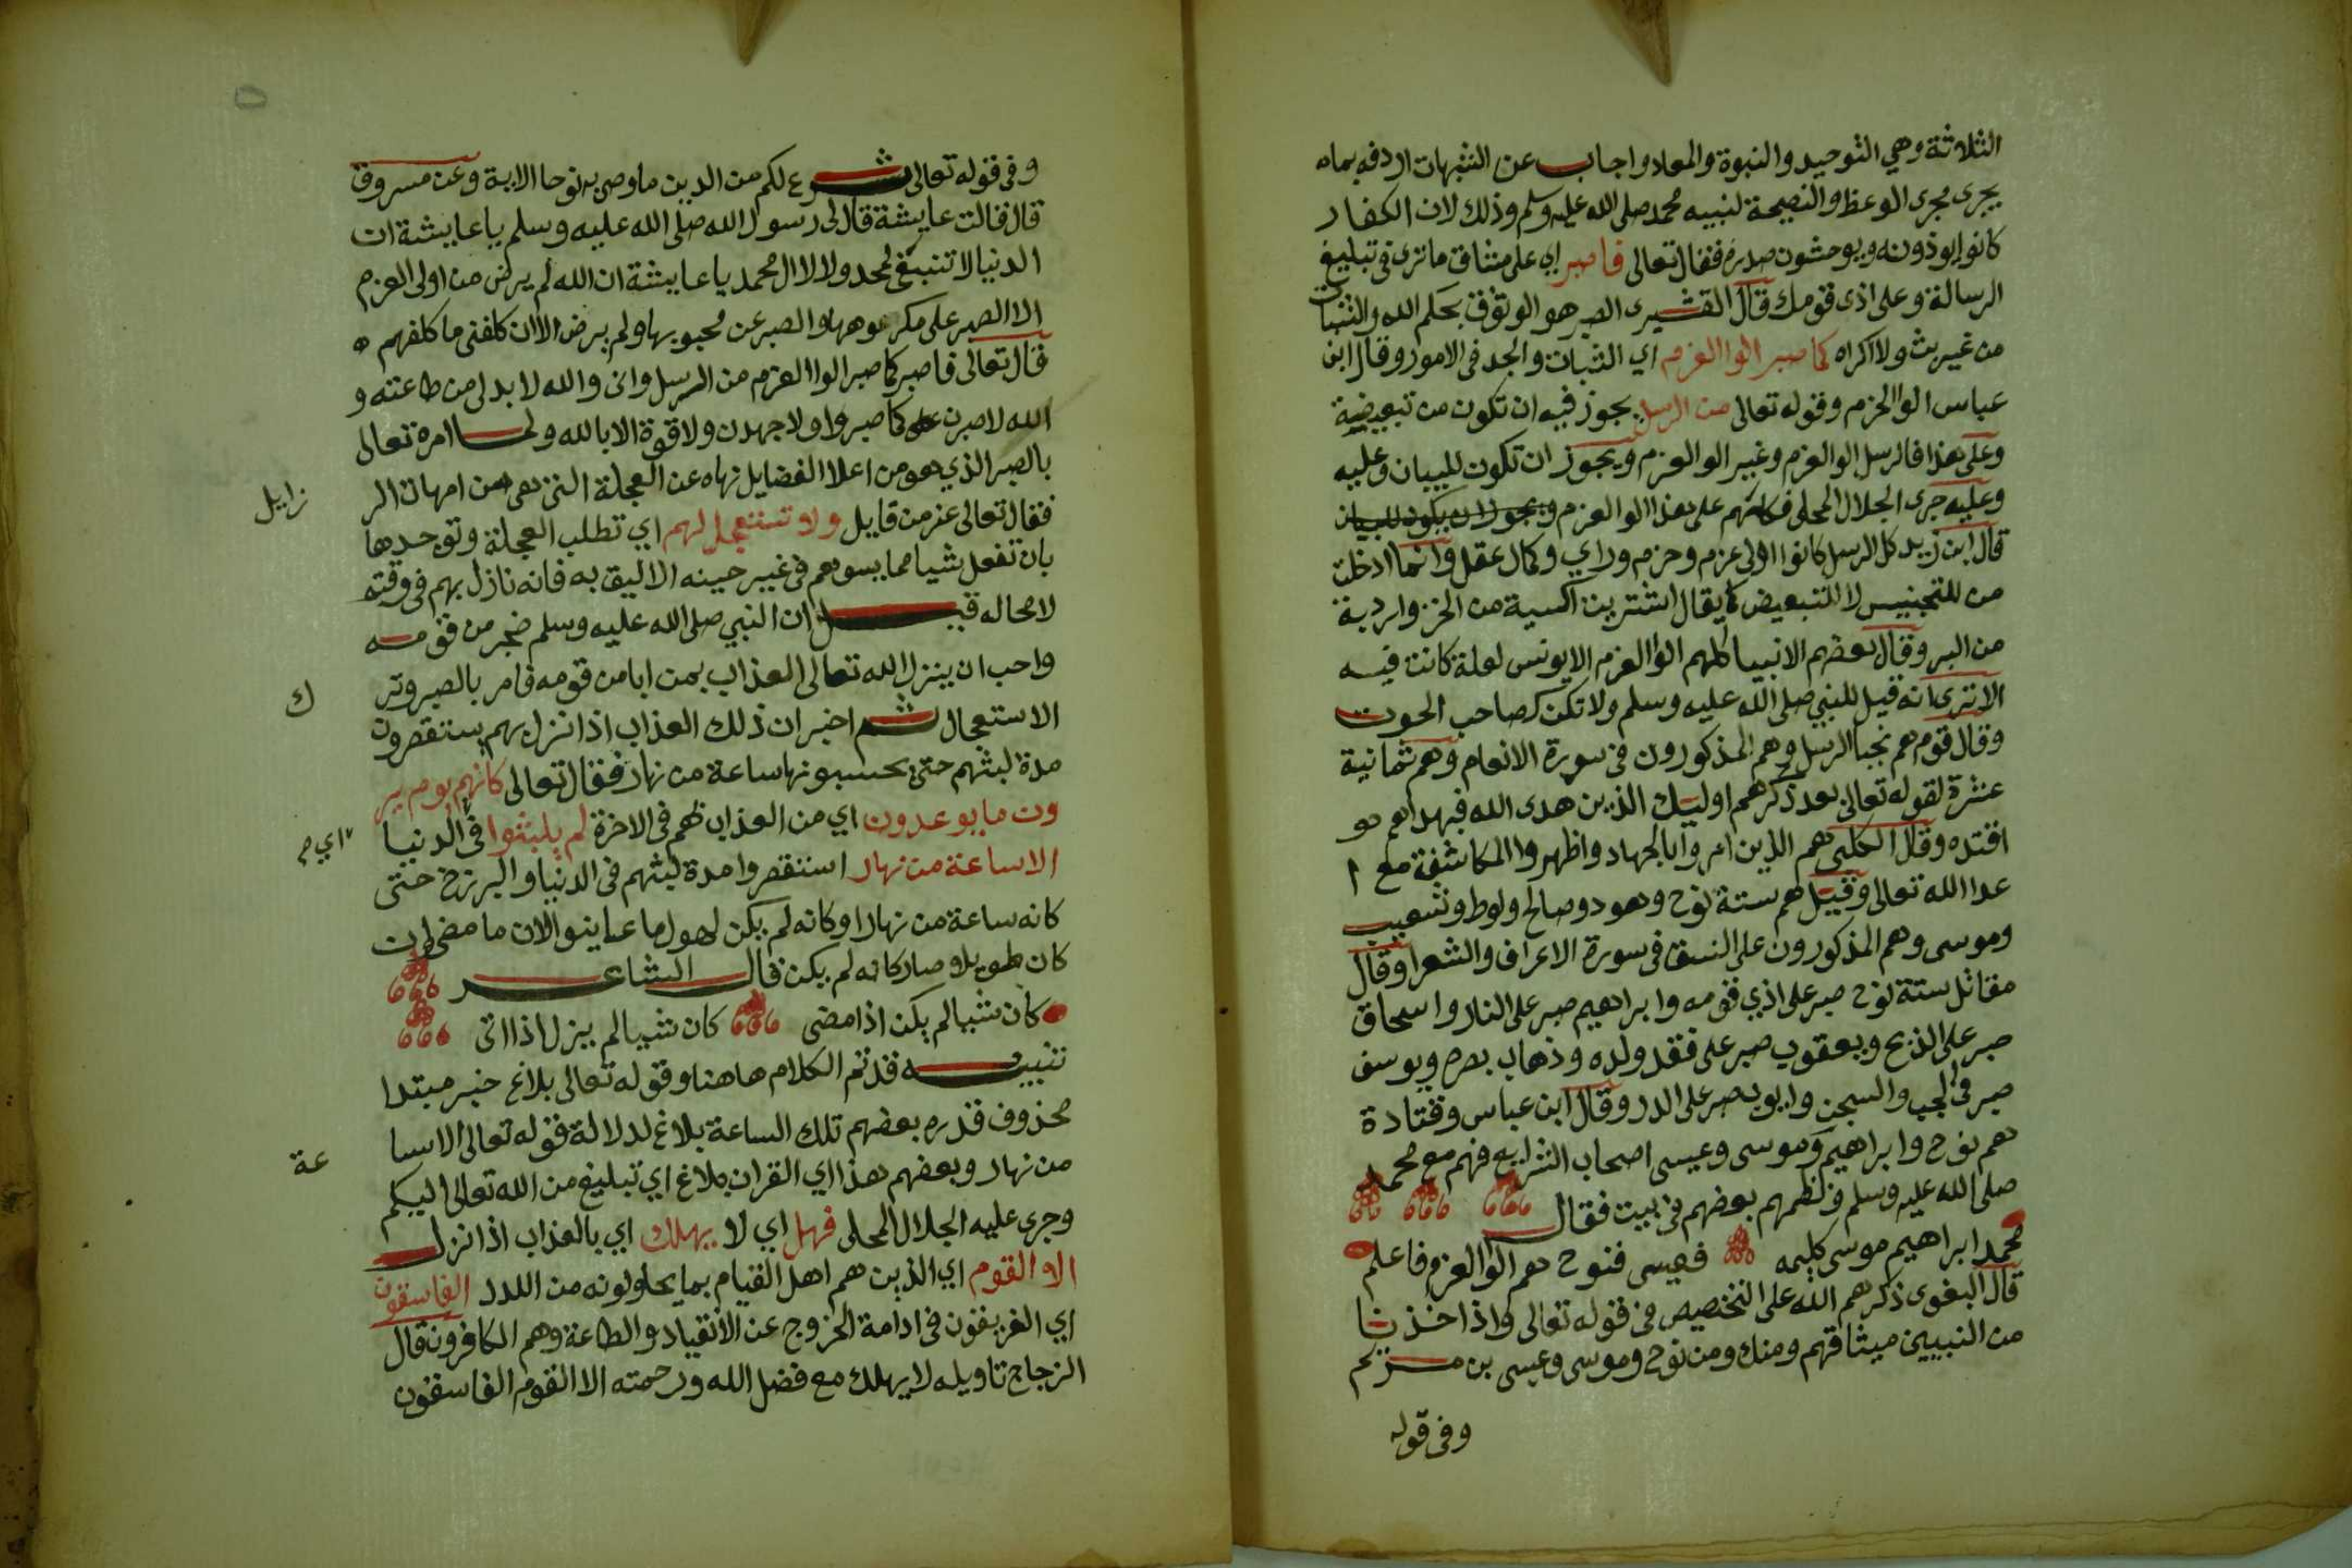 الثلاثة وهي التوحيد والنبوة والمعاد واجاب عن الشبهات اردفه بماه
يجرى مجرى الوعظ والنصيحة لنبيه محمد صلى الله عليه وسلم وذلك لان الكفار
كانوا يوذونه ويوحشون صدره فقال تعالى فاصبر اي على مشاق ماترى في تبليغ
الرسالة وعلى اذى قومك قال القشيرى الصبر هو الوثوق بحكم الله والثبات
من غير بث ولا اكراه كما صبر الوا العزم اي الثبات والجد في الامور وقال ابن
عباس الوا الحزم وقوله تعالى من الرسل يجوز فيه ان تكون من تبعيضية
وعلى هذا فالرسل الوا العزم وغير الوا العزم ويجوز ان تكون للبيان وعليه
وعليه جرى الجلال المحلى فكلهم على هذا الوا العزم ويجوز ان يكون للبيان
قال ابن زيد كل الرسل كانوا اولى عزم وحزم وراي وكمال عقل وانما ادخلت
من للتجنيس لا للتبعيض كما يقال اشتريت اكسية من الخز واردية
من البر وقال بعضهم الانبيا كلهم الوا العزم الا يونس لعلة كانت فيه
الا ترى انه قيل للنبي صلى الله عليه وسلم ولا تكن كصاحب الحوت
وقال قوم هم نجبا الرسل وهم المذكورون في سورة الانعام وهم ثمانية
عشرة لقوله تعالى بعد ذكرهم اوليك الذين هدى الله فبهداهم هو
اقتده وقال الكلبى هم الذين امروا بالجهاد واظهروا المكاشفة مع ا
عدا الله تعالى وقيل هم ستة نوح وهود وصالح ولوط وشعيب
وموسى وهم المذكورون على النسق فى سورة الاعراف والشعرا وقال
مقاتل ستة نوح صبر على اذي قومه وابراهيم صبر على النار واسحاق
صبر على الذبح ويعقوب صبر على فقد ولده وذهاب بصره ويوسف
صبر في الجب والسجن وايوب صبر على الدر وقال ابن عباس وقتادة
هم نوح وابراهيم وموسى وعيسى اصحاب الشرايع فهم مع محمد
صلى الله عليه وسلم ونظمهم بعضهم في بيت فقال
محمد ابراهيم موسى كليمه فعيسى فنوح هم الوا العزم فاعلم
قال البغوى ذكرهم الله على التخصيص في قوله تعالى واذ اخذنا
من النبيين ميثاقهم ومنك ومن نوح وموسى وعيسى بن مريم
وفى قوله
وفى قوله تعالى شرع لكم من الدين ما وصى به نوحا الاية وعن مسروق
قال قالت عايشة قال لى رسول الله صلى الله عليه وسلم يا عايشة ان
الدنيا لا تنبغى لمحمد ولا لال محمد يا عايشة ان الله لم يرض من اولى العزم
الا الصبر على مكروهها والصبر عن محبوبها ولم يرض الا ان كلفنى ما كلفهم ه
قال تعالى فاصبر كما صبر الوا العزم من الرسل وانى والله لا بد لى من طاعته و
الله لاصبرن كما صبروا ولاجهدن ولا قوة الا بالله ولما امره تعالى
بالصبر الذي هو من اعلا الفضايل نهاه عن العجلة التى هى من امهات الر
زايل
فقال تعالى عز من قايل ولا تستعجل لهم اي تطلب العجلة وتوجدها
بان تفعل شيا مما يسوهم فى غير حينه الاليق به فانه نازل بهم فى وقته
لا محاله قيل ان النبي صلى الله عليه وسلم ضجر من قومه
واحب ان ينزل الله تعالى العذاب بمن ابا من قومه فامر بالصبر وتر
ك
الاستعجال ثم اخبر ان ذلك العذاب اذا نزل بهم يستقصرون
مدة لبثهم حتى يحسبونها ساعة من نهار فقال تعالى كانهم يوم ير
ون ما يوعدون اي من العذاب لهم فى الاخرة لم يلبثوا فى الدنيا
اي م
الا ساعة من نهار استقصروا مدة لبثهم فى الدنيا والبرزخ حتى
كانه ساعة من نهار او كانه لم يكن لهول ما عاينوا لان ما مضى وان
كان طويلا صار كانه لم يكن قال الشاعر
كان شيا لم يكن اذا مضى كان شيا لم يزل اذا اتى
تنبيه قد تم الكلام هاهنا وقوله تعالى بلاغ خبر مبتدا
محذوف قدره بعضهم تلك الساعة بلاغ لدلالة قوله تعالى الا سا
عة
من نهار وبعضهم هذا اي القران بلاغ اي تبليغ من الله تعالى اليكم
وجرى عليه الجلال المحلى فهل اي لا يهلك اي بالعذاب اذا نزل
الا القوم اي الذين هم اهل القيام بما يحاولونه من اللدد الفاسقون
اي الغريقون فى ادامة الخروج عن الانقياد والطاعة وهم الكافرون قال
الزجاج تاويله لا يهلك مع فضل الله ورحمته الا القوم الفاسقون